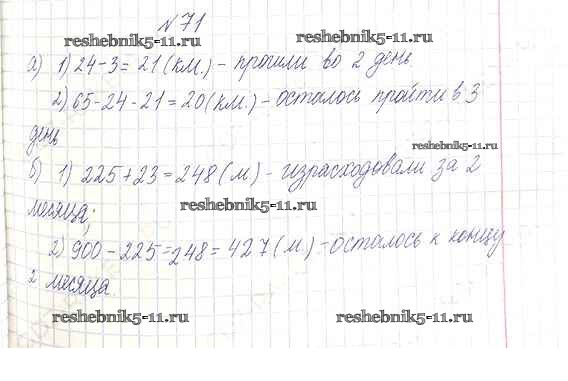 № 71
reshebnik5-11.ru reshebnik5-11.ru
а) 1) 24-3=21 (км.) - прошли во 2 день
2) 65-24-21=20 (км.) - осталось пройти в 3
день
reshebnik5-11.ru
б) 1) 225+23=248 (м) - израсходовали за 2
месяца;
reshebnik5-11.ru
2) 900-225=248=427 (м) - осталось к концу
2 месяца.
reshebnik5-11.ru reshebnik5-11.ru